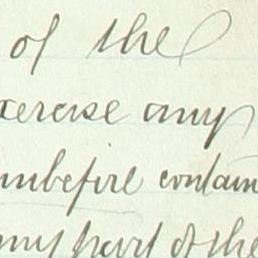 of the
xercise any
inbefore contain
any part of the